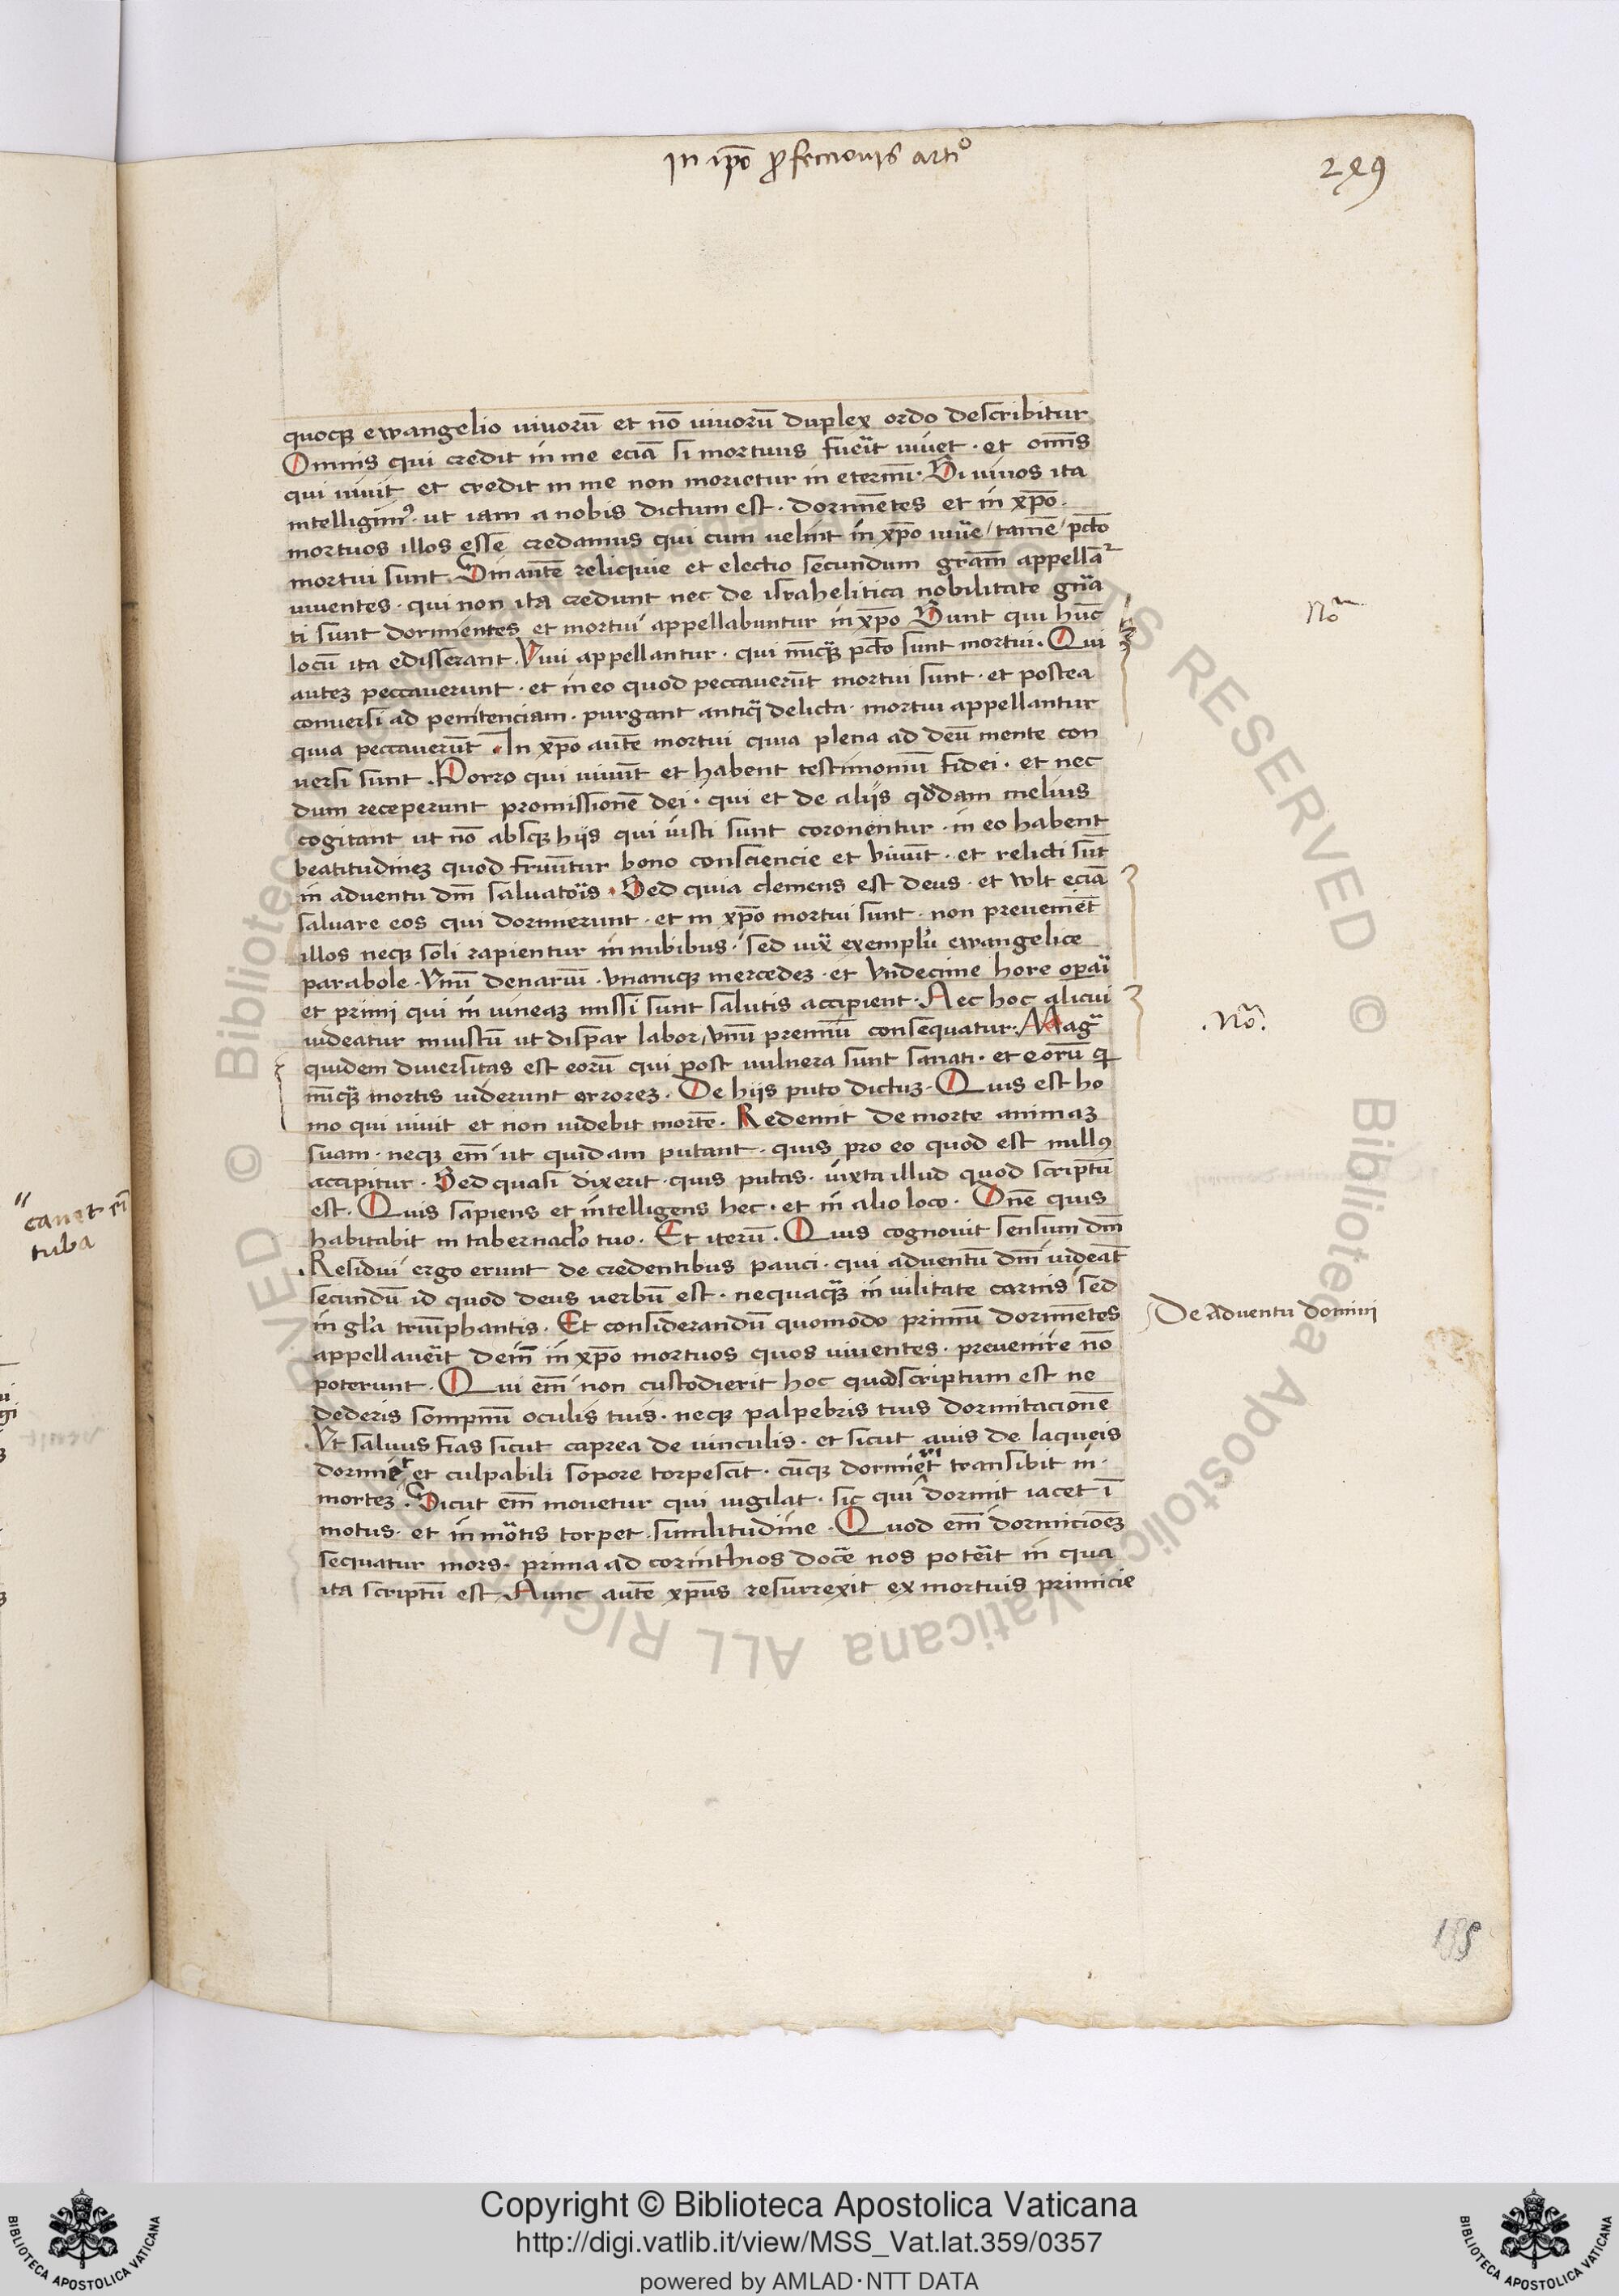 In ip̄o ꝓfeccionis artiᵒ
249
quoqꝫ ewangelio uiuorū et nō uiuorū duplex ordo describitur
Omnis qui credit in me eciā si mortuus fuēit uiuet · et om̄s
qui uiuit et credit in me non morietur in eternū · Si uiuos ita
intelligimꝰ · ut iam a nobis dictum est · dormiētes et in xp̄o ·
mortuos illos esse credamus qui cum uelint in xp̄o uiuē / tamē / pctō
mortui sunt · Sin autē reliquie et electio secundum grām appellāt
uiuentes · qui non ita credunt nec de israhelitica nobilitate gn̄a
ti sunt dormientes et mortui appellabuntur in xp̄o Sunt qui hūc
locū ita edisserant · Viui appellantur · qui nūcqꝫ pctō sunt mortui · Qui
auteꝫ peccauerunt · et in eo quod peccauerūt mortui sunt · et postea
conuersi ad penitenciam · purgant antiq̄ delicta · mortui appellantur
quia peccauerūt · In xp̄o autē mortui quia plena ad deū mente con
uersi sunt · Porro qui uiuūt et habent testimoniū fidei · et nec
dum receperunt promissionē dei · qui et de aliis qdd̄am melius
cogitant ut nō absqꝫ hiis qui iusti sunt coronentur · in eo habent
beatitudineꝫ quod fruūtur bono consciencie et viuūt · et relicti sūt
in aduentu dn̄i saluatōis · Sed quia clemens est deus · et wlt eciā
saluare eos qui dormierunt · et in xp̄o mortui sunt · non preueniēt
illos neqꝫ soli rapientur in nubibus · sed iux̄ exemplū ewangelice
parabole · Vnū denariū · vnamqꝫ mercedeꝫ · et vndecime hore opāii
et primi qui in uineaꝫ missi sunt salutis accipient · Nec hoc alicui
uideatur iniustū ut dispar labor / vnū premiū consequatur · Magā
quidem diuersitas est eorū qui post uulnera sunt sanati · et eorū q̄i
nūcqꝫ mortis uiderunt erroreꝫ · De hiis puto dictuꝫ · Quis est ho
mo qui uiuit et non uidebit mortē · Redemit de morte animaꝫ
suam · neqꝫ em̄ ut quidam putant · quis pro eo quod est nullꝰ
accipitur · Sed quasi dixerit · quis putas · iuxta illud quod scriptū
est · Quis sapiens et intelligens hec · et in alio loco · Dn̄e quis
habitabit in tabernac̄lo tuo · Et iterū · Quis cognouit sensum dn̄i
Residui ergo erunt de credentibus pauci · qui aduentū dn̄i uideāt
secundū id quod deus uerbū est · nequaqꝫ in uilitate carnis sed
in glā triūphantis · Et considerandū quomodo primū dormiētes
appellauēit dein̄ in xp̄o mortuos quos uiuentes · preuenire nō
poterunt · Qui em̄ non custodierit hoc quod scriptum est ne
dederis sompnū oculis tuis · neqꝫ palpebris tuis dormitacionē
Vt saluus fias sicut caprea de uinculis · et sicut auis de laqueis
dormiet et culpabili sopore torpescit · cūqꝫ dormierit transibit in ·
morteꝫ · Sicut em̄ mouetur qui uigilat · sic qui dormit iacet ī
motus · et in mōtis torpet similitudine · Quod em̄ dormicōeꝫ
sequatur mors · prima ad corinthios docē nos potēit in qua
ita scriptū est · Nunc autē xp̄us resurrexit ex mortuis primicie
No
.No.
De Aduentu domini
canet
tuba
Copyright © Biblioteca Apostolica Vaticana
http://digi.vatlib.it/view/MSS_Vat.lat.359/0357
powered by AMLAD·NTT DATA
BIBLIOTECA APOSTOLICA VATICANA
BIBLIOTECA APOSTOLICA VATICANA